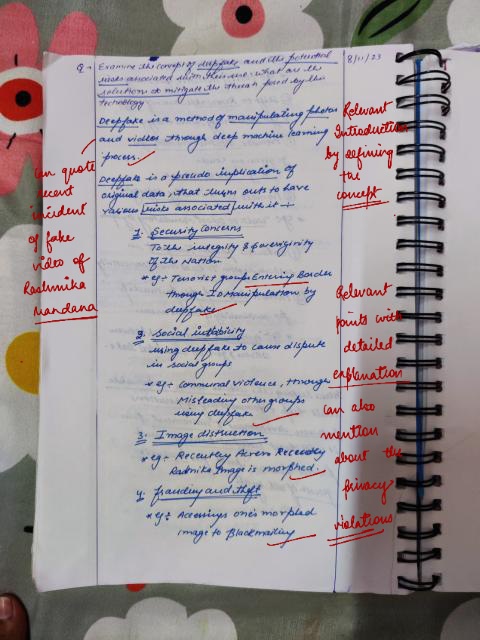 Q → Examine the concept of deepfake and the potential
risks associated with their use. what are the
solution to mitigate the threat posed by this
technology
8/11/23
Deepfake is a method of manipulating photos
and videos through deep machine learning
process.
Relevant
Introduction
by defining
the
concept
Deepfake is a pseudo implication of
original data, that turns out to have
various risks associated with it :-
can quote
recent
incident
of fake
video of
Rashmika
mandana
1. Security Concerns
To the integrity & sovereignity
of the Nation
* eg :- Terrorist groups Entering Border
through ID Manipulation by
deepfake
2. Social instability
using deepfake to cause dispute
in social groups
* eg :- Communal violence, through
Misleading other groups
using deepfake
Relevant
points with
detailed
explanation
3. Image distruction
* eg :- Recently Actress Recently
Radmika Image is morphed.
4. frauding and theft
* eg :- Accessing one's morphed
image to Blackmailing
can also
mention
about the
privacy
violations